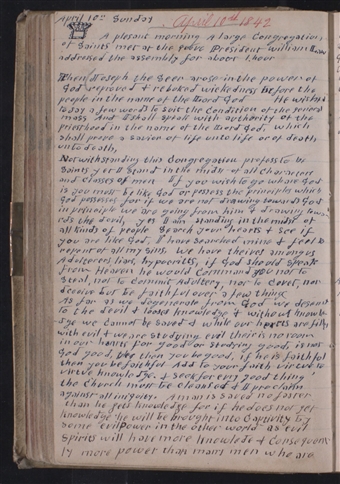 April 10th Sunday April 10th 1842
A pleasent morning A large Congregation
of Saints met at the grove President William
addressed the assembly for about 1 hour
When Joseph the Seer arose in the power of
God reproved & rebuked wickedness before the
people in the name of the Lord God He wished
to say a few words to suit the condition of the general
mass And I shall speak with authority of the
priesthood in the name of the Lord God, which
shall prove a savior of life unto life or of death
unto death,
Notwithstanding this Congregation profess to be
Saints yet I stand in the midst of all characters
and classes of men If you wish to go whare God
is you must be like God or possess the principles which
God possesses for if we are not drawing towards God
in principle we are going from him & drawing tow-
ards the devil, yes I am standing in the midst of
all kinds of people Search your hearts & see if
you are like God, I have searched mine & feel to
repent of all my sins, We have theives among us
Adulterers, liars, hypocritts, if God should speak
from Heaven he would Command you not to
steal, not to commit Adultery, nor to Covet, nor
deceive but be faithful over a few things
As far as we degenerate from God we desend
to the devil & looses knowledge & without knowle-
dge we cannot be saved & while our hearts are filled
with evil & we are studying evil their is no room
in our hearts for good or studying good, is not
God good, then you be good, if he is faithful
then you be faithful Add to your faith virtue to
virtue knowledge, & seek for evry good thing
the Church must be cleansed & I proclaim
against all iniquity. A man is saved no faster
than he gets knowledge for if he does not get
knowledge he will be brought into Captivity by
some evil power in the other world as evil
spirits will have more knowlede & consequent
ly more power than many men who are